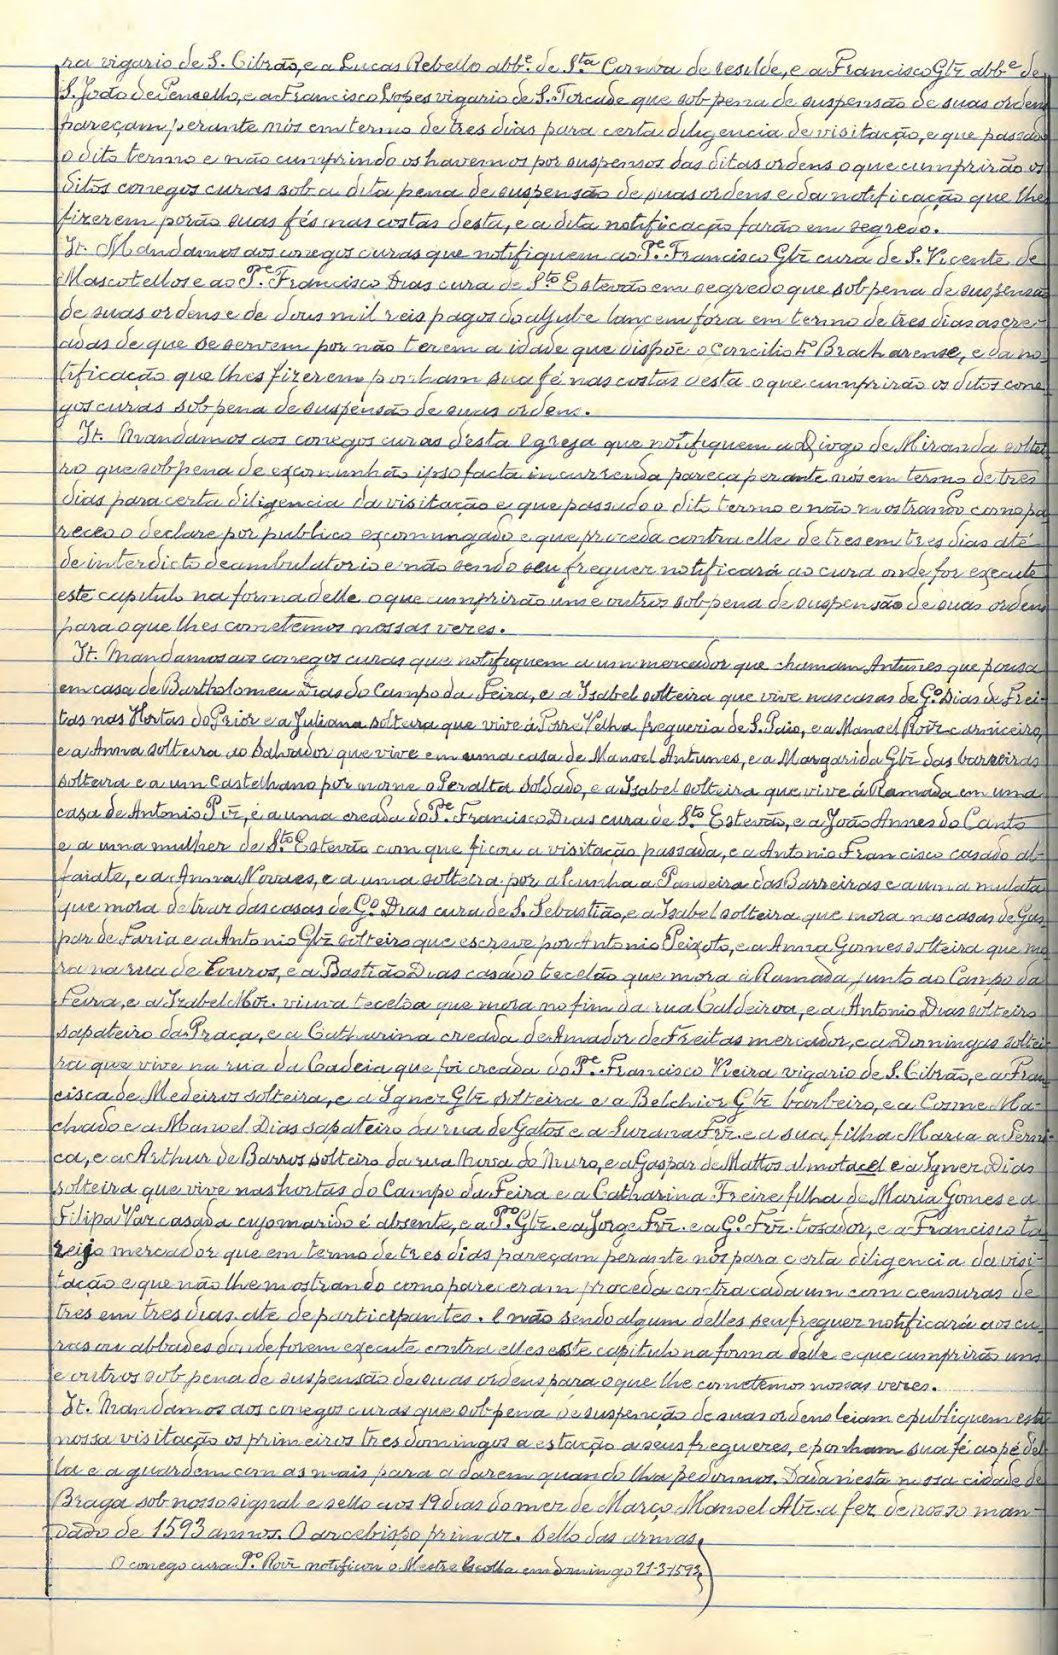 ra vigario de S. Cibrão, e a Lucas Rebello abb.e de S.ta de, e a Francisco Glz abb.e de
S. João de Pensello, e a Francisco Lopes vigario de S. Torcade que sob pena de suspensão de suas ordens
pareçam perante nós em termo de tres dias para certa diligencia de visitação, e que passado
o dito termo e não cumprindo os havemos por suspensos das ditas ordens o que cumprirão os
ditos conegos curas sob a dita pena de suspensão de suas ordens e da notificação que lhe
fizerem porão suas fés nas costas desta, e a dita notificação farão em segredo.
It. Mandamos aos conegos curas que notifiquem ao P.e Francisco Glz cura de S. Vicente de
Mascotellos e ao P.e Francisco Dias cura de S.to Estevão em segredo que sob pena de suspensão
de suas ordens e de dous mil reis pagos do aljube lançem fora em termo de tres dias as cre-
adas de que se servem por não terem a idade que dispõe o Concilio 4º Bracharense, e da no-
tificação que lhes fizerem ponham sua fé nas costas desta o que cumprirão os ditos cone
gos curas sob pena de suspensão de suas ordens.
It. Mandamos aos conegos curas desta Egreja que notifiquem a Diogo de Miranda soltei
ro que sob pena de excomunhão ipso facta incurrenda pareça perante nós em termo de tres
dias para certa diligencia da visitação e que passado o dito termo e não mostrando como pa
receo o declare por publico excomungado e que proceda contra elle de tres em tres dias até
de interdicto deambulatorio e não sendo seu freguez notificará ao cura onde for execute
este capitulo na forma delle o que cumprirão uns e outros sob pena de suspensão de suas ordens
para o que lhes cometemos nossas vezes.
It. Mandamos aos conegos curas que notifiquem a um mercador que chamam Antunes que pousa
em casa de Bartholomeu Dias do Campo da Feira, e a Isabel solteira que vive nas casas de G.º Dias de Frei-
tas nas Hortas do Prior e a Juliana solteira que vive á Torre Velha freguezia de S. Paio, e a Manoel Roiz carniceiro,
e a Anna solteira ao Salvador que vive em uma casa de Manoel Antunes, e a Margarida Glz das barreiras
solteira e a um Castelhano por nome o Peralta soldado, e a Isabel solteira que vive á Ramada em uma
casa de Antonio Piz, e a uma creada do P.e Francisco Dias cura de S.to Estevão, e a João Annes do Canto
e a uma mulher de S.to Estevão com que ficou a visitação passada, e a Antonio Francisco casado al-
faiate, e a Anna Novaes, e a uma solteira por alcunha a Pandeira das Barreiras e a uma mulata
que mora detraz das casas de G.º Dias cura de S. Sebastião, e a Isabel solteira que mora nas casas de Gas
par de Faria e a Antonio Glz solteiro que escreve por Antonio Peixoto, e a Anna Gomes solteira que mo
ra na rua de Couros, e a Bastião Dias casado tecelão que mora á Ramada junto ao Campo da
Feira, e a Izabel Miz. viuva tecelôa que mora no fim da rua Caldeiroa, e a Antonio Dias solteiro
sapateiro da Praça, e a Catharina creada de Amador de Freitas mercador, e a Domingas soltei
ra que vive na rua da Cadeia que foi creada do P.e Francisco Vieira vigario de S. Cibrão, e a Fran
cisca de Medeiros solteira, e a Ignez Glz solteira e a Belchior Glz barbeiro, e a Cosme Ma-
chado e a Manoel Dias sapateiro da rua de Gatos e a Suzana Frz. e a sua filha Maria a
ca, e a Arthur de Barros solteiro da rua Nova do Muro, e a Gaspar de Mattos almotacel e a Ignez Dias
solteira que vive nas hortas do Campo da Feira e a Catharina Freire filha de Maria Gomes e a
Filipa Vaz casada cujo marido é absente, e a P.º Glz. e a Jorge Frz. e a G.º Frz. tosador, e a Francisco ta
reijo mercador que em termo de tres dias pareçam perante nós para certa diligencia da visi-
tação e que não lhe mostrando como pareceram proceda contra cada um com censuras de
tres em tres dias até de participantes. E não sendo algum delles seu freguez notificará aos cu-
ras ou abbades donde forem execute contra elles este capitulo na forma delle e que cumprirão uns
e outros sob pena de suspensão de suas ordens para o que lhe cometemos nossas vezes.
It. Mandamos aos conegos curas que sob pena de suspenção de suas ordens leiam e publiquem esta
nossa visitação os primeiros tres domingos a estação a seus freguezes, e ponham sua fé ao pé del
la e a guardem com as mais para a darem quando lha pedirmos. Dada n'esta nossa cidade de
Braga sob nosso signal e sello aos 19 dias do mez de Março Manoel Alz. a fez de nosso man-
dado de 1593 annos. O arcebispo primaz. Sello das armas.
O conego cura P.º Roiz notificou o Mestre Escolla em domingo 21-3-1593